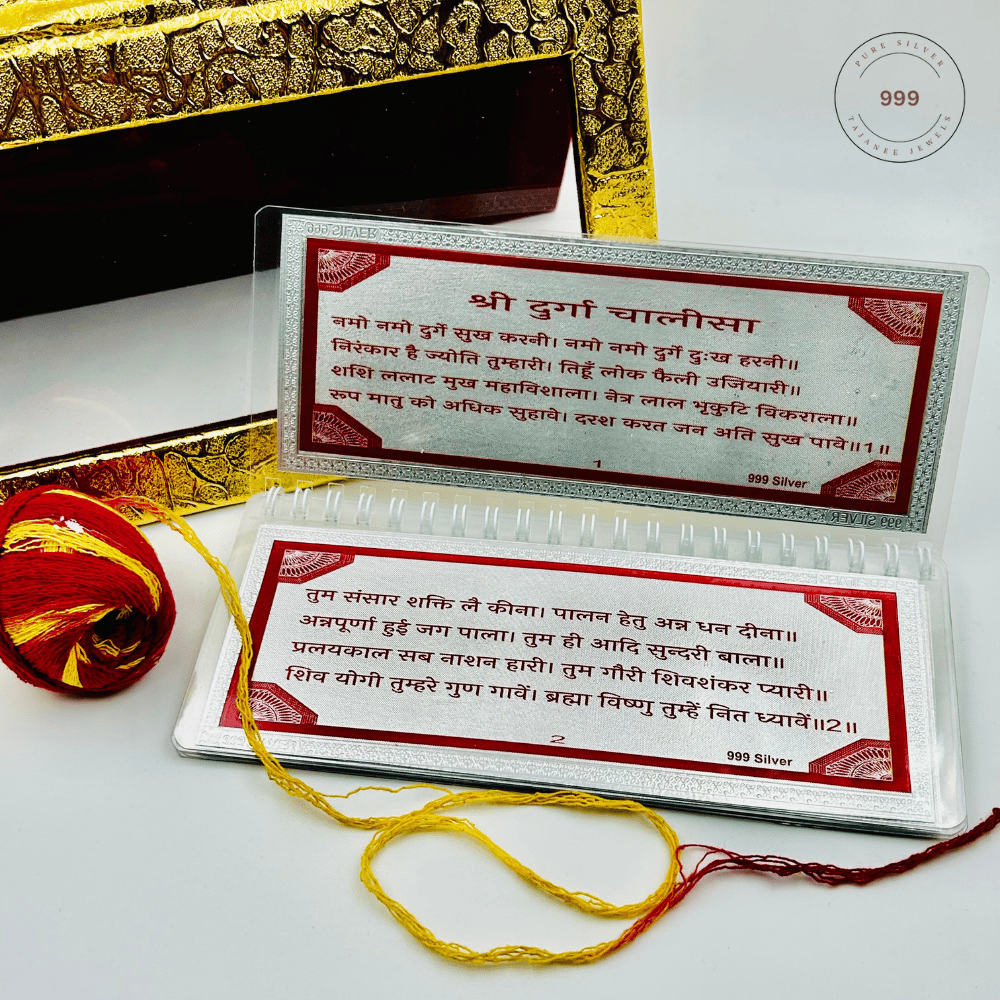 PURE SILVER
999
TAJANEE JEWELS
999 SILVER
श्री दुर्गा चालीसा
नमो नमो दुर्गे सुख करनी। नमो नमो दुर्गे दुःख हरनी॥
निरंकार है ज्योति तुम्हारी। तिहूँ लोक फैली उजियारी॥
शशि ललाट मुख महाविशाला। नेत्र लाल भृकुटि विकराला॥
रूप मातु को अधिक सुहावे। दरश करत जन अति सुख पावे॥1॥
1
999 Silver
999 SILVER
तुम संसार शक्ति लै कीना। पालन हेतु अन्न धन दीना॥
अन्नपूर्णा हुई जग पाला। तुम ही आदि सुन्दरी बाला॥
प्रलयकाल सब नाशन हारी। तुम गौरी शिवशंकर प्यारी॥
शिव योगी तुम्हरे गुण गावें। ब्रह्मा विष्णु तुम्हें नित ध्यावें॥2॥
2
999 Silver